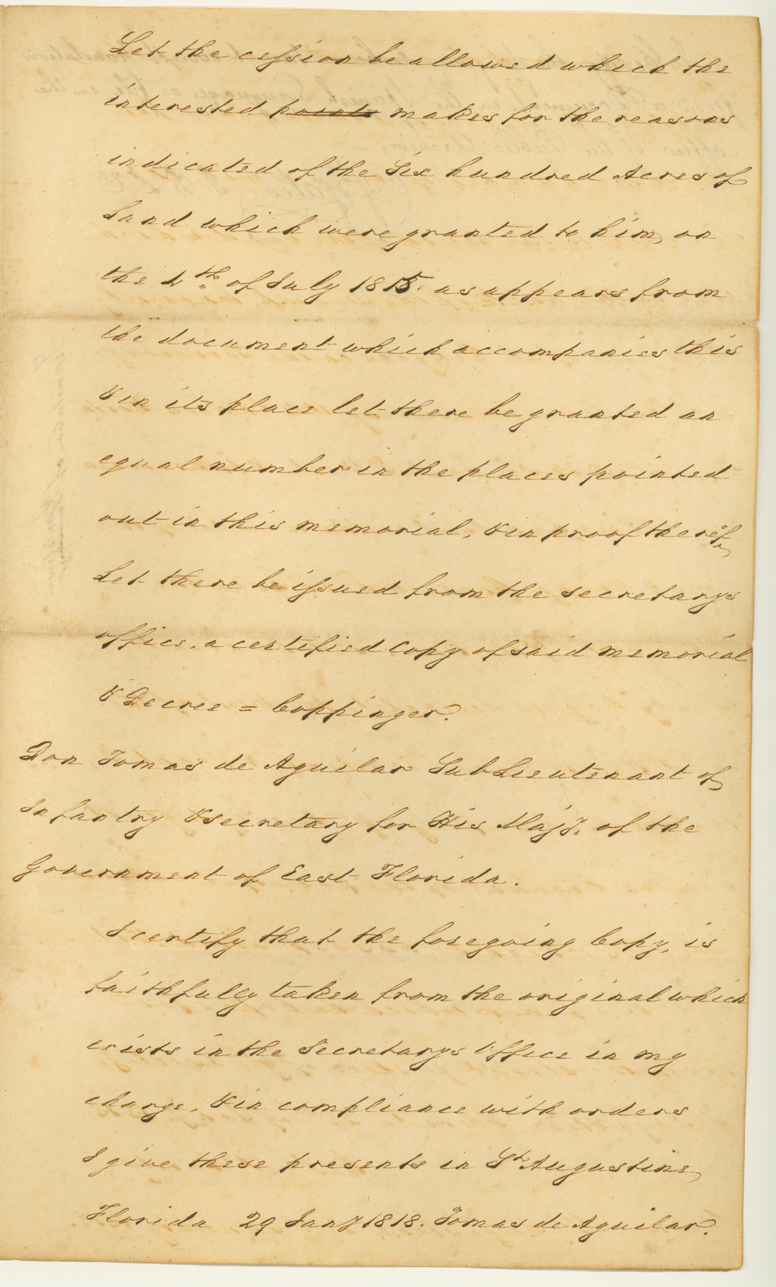 Let the cession be allowed which the
interested points makes for the reasons
indicated of the Six hundred Acres of
Land which were granted to him, on
the 4th of July 1815. as appears from
the document which accompanies this
& in its place let there be granted an
equal number in the places pointed
out in this memorial, & in proof thereof,
Let there be issued from the secretarys
office, a certified Copy of said memorial
& Decree = Coppinger.
Don Tomas de Aguilar SubLieutenant of
Infantry & secretary for His Majy. of the
Government of East Florida.
I certify that the foregoing Copy, is
faithfully taken from the original which
exists in the Secretarys Office in my
charge, & in compliance with orders
I give these presents in St Augustine,
Florida 29 Jany 1818. Tomas de Aguilar.